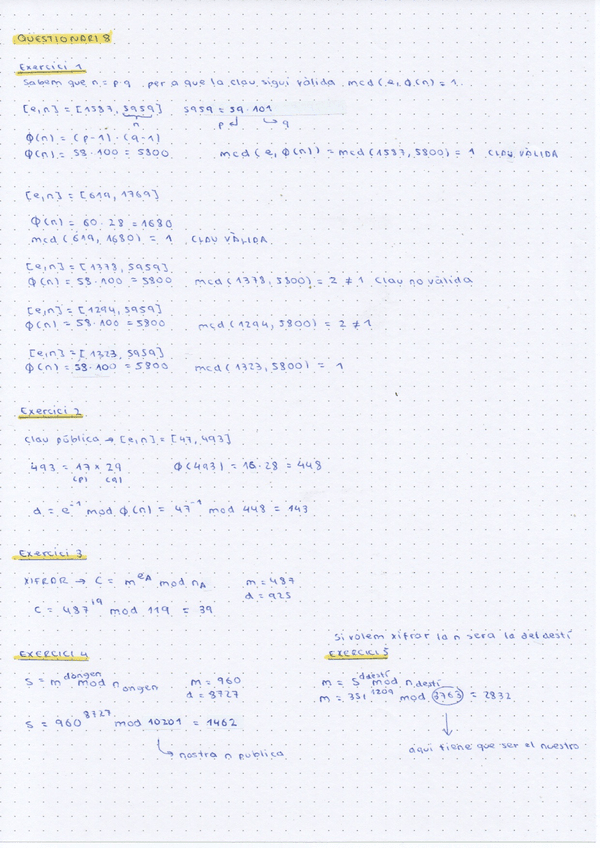 QÜESTIONARI 8
Exercici 1
Sabem que n = p·q per a que la clau sigui vàlida mcd(e, Φ(n) = 1.
[e,n] = [1537, 5959] 5959 = 59·101
n p q
Φ(n) = (p-1)·(q-1)
Φ(n) = 58·100 = 5800 mcd(e, Φ(n)) = mcd(1537, 5800) = 1 CLAU VÀLIDA
[e,n] = [619, 1769]
Φ(n) = 60·28 = 1680
mcd(619, 1680) = 1 CLAU VÀLIDA
[e,n] = [1378, 5959]
Φ(n) = 58·100 = 5800 mcd(1378, 5800) = 2 ≠ 1 Clau no vàlida
[e,n] = [1294, 5959]
Φ(n) = 58·100 = 5800 mcd(1294, 5800) = 2 ≠ 1
[e,n] = [1323, 5959]
Φ(n) = 58·100 = 5800 mcd(1323, 5800) = 1
Exercici 2
Clau pública → [e,n] = [47, 493]
493 = 17 × 29 Φ(493) = 16·28 = 448
(p) (q)
d = e⁻¹ mod Φ(n) = 47⁻¹ mod 448 = 143
Exercici 3
XIFRAR → C = m^eA mod nA m = 487
d = 925
C = 487¹⁹ mod 119 = 39
EXERCICI 4
S = m^dorigen mod n origen m = 960
d = 8727
S = 960⁸⁷²⁷ mod 10201 = 1462
↳ nostra n publica
Si volem xifrar la n sera la del destí
EXERCICI 5
m = S^ddestí mod n destí
m = 351¹²⁰⁹ mod 3763 = 2832
aqui tiene que ser el nuestro